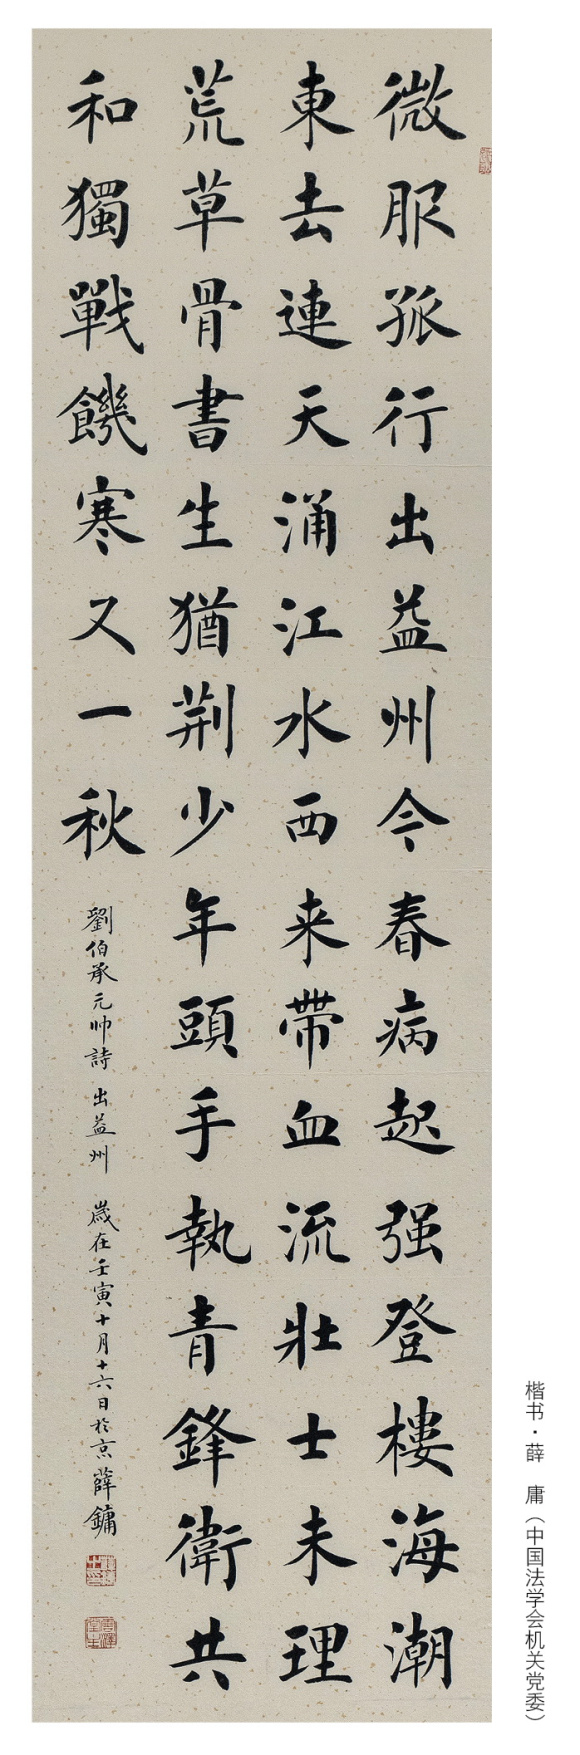 微服孤行出益州今春病起强登樓海潮
東去連天涌江水西来帶血流壯士未理
荒草骨書生猶荆少年頭手執青鋒衛共
和獨戰饑寒又一秋
劉伯承元帅詩 出益州 歲在壬寅十月十六日於京 薛鏞
楷书·薛 庸（中国法学会机关党委）